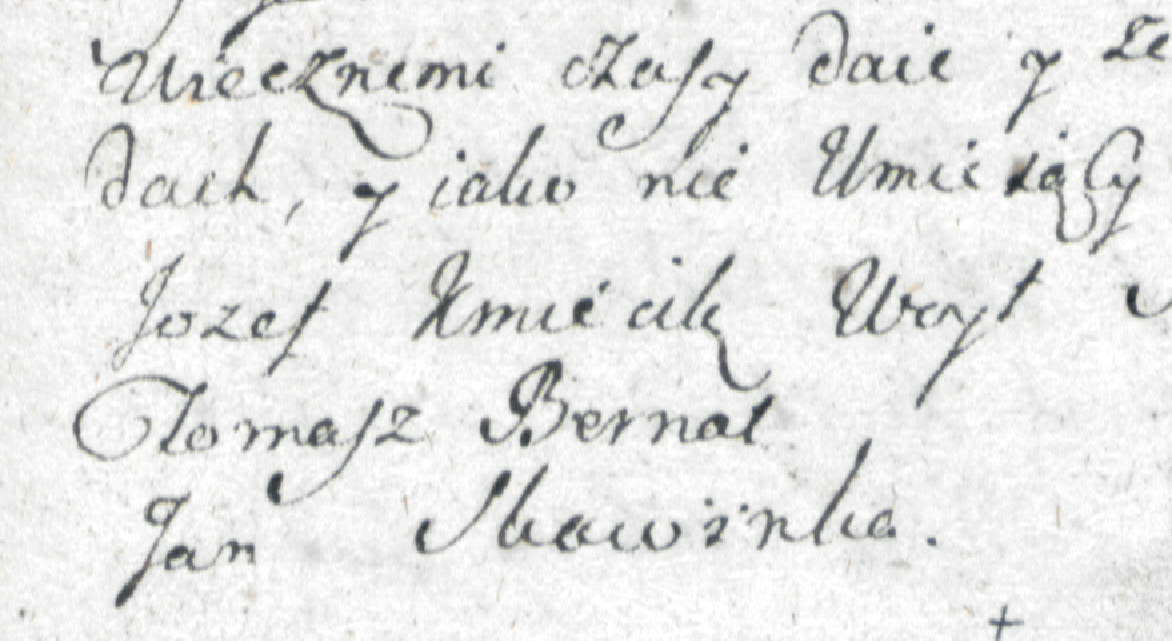 Wiecznemi czasy daie y ze
dach, y iako nie Umieiący
Jozef Kmiecik Woyt
Tomasz Bernat
Jan Skawinka.
+